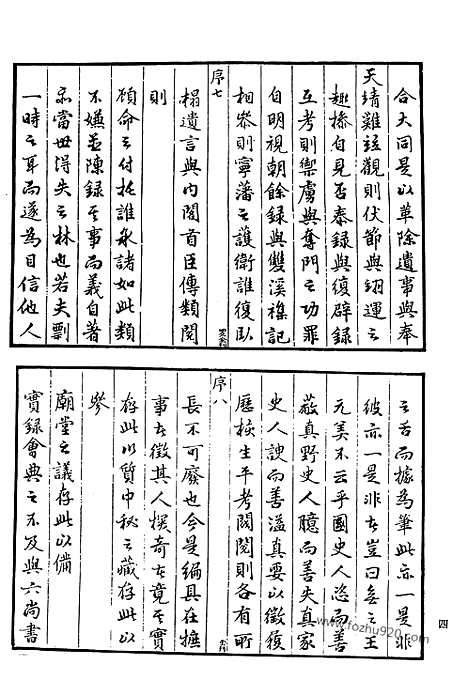 合大同是以革除遺事與奉
天靖難竝觀則伏節與翊運之
趣操自見否泰錄與復辟錄
互考則禦虜與奪門之功罪
自明視朝餘錄與雙溪襍記
相參則寧藩之護衛誰復臥
序七
榻遺言與內閣首臣傳類閱
則
顧命之付托誰承諸如此類
不嫌並陳錄其事而義自著
亦當世得失之林也若夫剽
一時之耳而遂為目信他人
之舌而據為筆此亦一是非
彼亦一是非豈曰無之王
元美不云乎國史人恣而善
蔽真野史人臆而善失真家
史人諛而善溢真要以徵復
歷核生平考閥閱則各有所
序八
長不可廢也今是編具在摭
事徵其人撰奇竟其實
存此以質中秘之藏存此以
參
廟堂之議存此以備
實錄會典之不及與六尚書
四
www.fozhu920.com